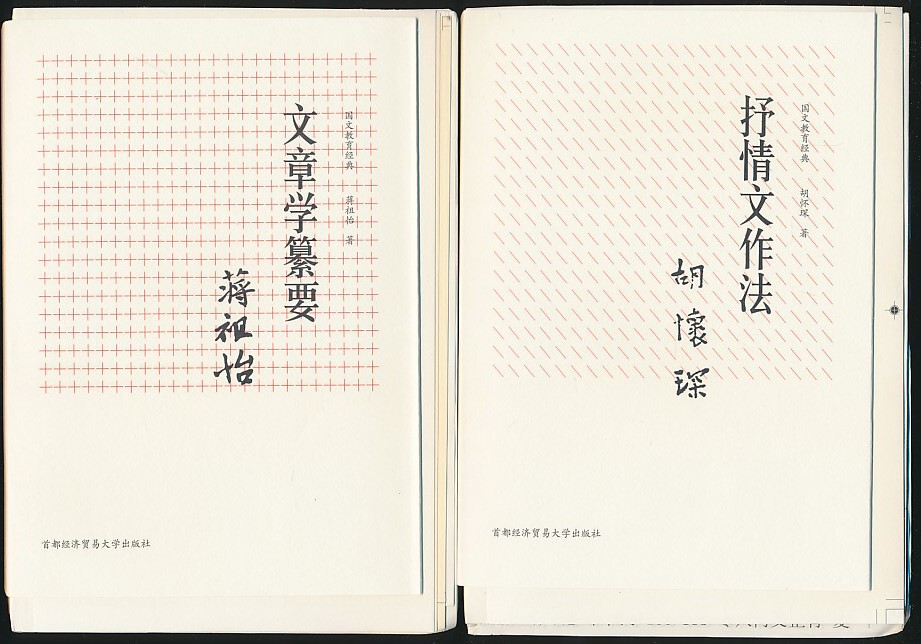 国文教育经典 蒋祖怡 著
文章学纂要
蒋祖怡
首都经济贸易大学出版社
国文教育经典 胡怀琛 著
抒情文作法
胡懷琛
首都经济贸易大学出版社